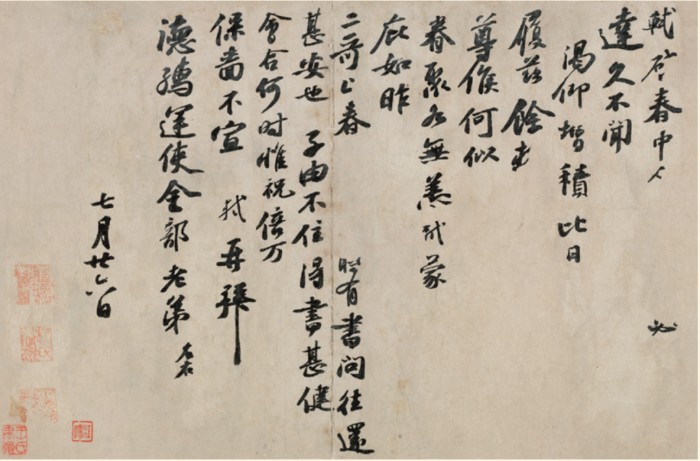 軾啓春中必
達久不聞
渴仰增積比日
履茲餘
尊候何似
眷聚各無恙軾蒙
庇如昨
二哥上春 時有書問往還
甚安也子由不住得書甚健
會合何時惟祝倍万
保嗇不宣 軾再拜
德孺運使金部老弟 左右
七月廿六日